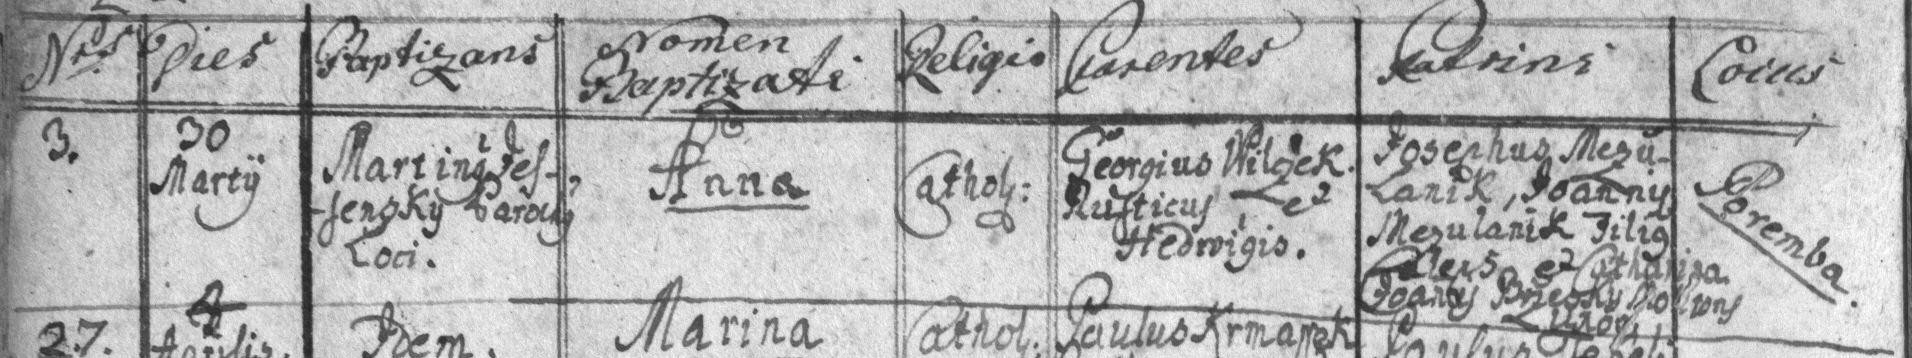 Nrus Dies Baptizans Nomen Baptizati Religio Parentes Patrini Locus
3.
30
Martij
Martinus Jes-
-senský Parochus
Loci.
Anna
Cathol:
Georgius Wilczek.
Rusticus et
Hedwigis.
Josephus Mezu-
Lanik, Joannis
Mezulanik Filius
Celebs et Catharina
Joannis
Uxor
Poremba.
27.
4
Aprilis.
Idem.
Marina
Cathol.
Paulus
Paulus